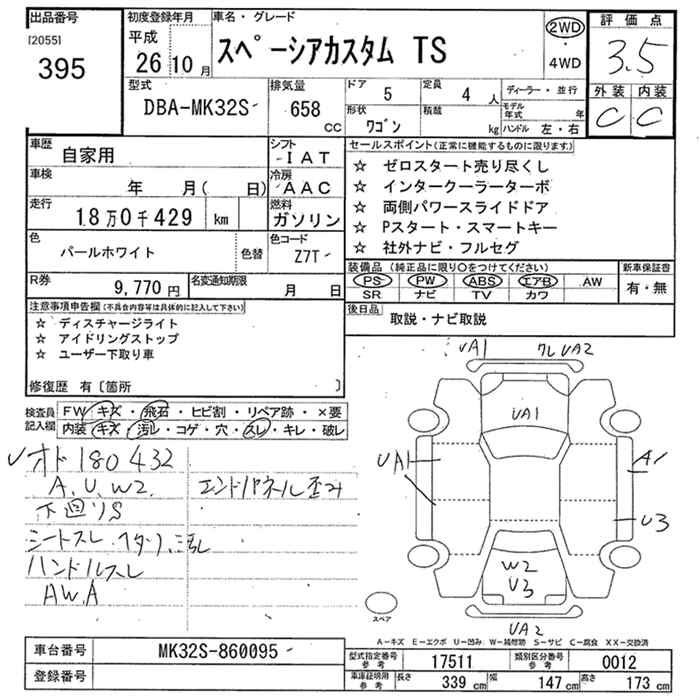 出品番号
[2055]
395
初度登録年月
平成
26 10 月
車名・グレード
スペーシアカスタム TS
2WD
・
4WD
評価点
3.5
外装 内装
C C
型式
DBA-MK32S
排気量
658
CC
ドア
5
定員
4 人
形状
ワゴン
積載
kg
ディーラー・並行
モデル年式 年
ハンドル 左・右
車歴
自家用
シフト
IAT
車検
年 月( 日)
冷房
AAC
走行
18万0千429 km
燃料
ガソリン
色
パールホワイト
色替
色コード
Z7T
R券
9,770 円
名変通知期限
月 日
セールスポイント(正常に機能するものに限ります)
☆ ゼロスタート売り尽くし
☆ インタークーラーターボ
☆ 両側パワースライドドア
☆ Pスタート・スマートキー
☆ 社外ナビ・フルセグ
装備品(純正品に限り○をつけてください)
PS PW ABS エアB AW
SR ナビ TV カワ
新車保証書
有・無
後日品
取説・ナビ取説
注意事項申告欄(不具合内容等は具体的に記入して下さい)
☆ ディスチャージライト
☆ アイドリングストップ
☆ ユーザー下取り車
修復歴 有〔箇所 〕
検査員記入欄
FW キズ・飛石・ヒビ割・リペア跡・×要
内装 キズ・汚レ・コゲ・穴・スレ・キレ・破レ
オド 180432
A.U.W2. エンドパネル歪み
下廻りS
シートスレ.ヘタリ.汚レ
ハンドルスレ
AW.A
UA1 ワレ UA2
UA1
UA1 A1
U3
W2
U3
UA2
スペア
A-キズ E-エクボ U-凹み W-補修跡 S-サビ C-腐食 XX-交換済
車台番号
MK32S-860095
登録番号
型式指定番号 参考
17511
類別区分番号 参考
0012
車庫証明用 参考
長さ 339 cm 幅 147 cm 高さ 173 cm